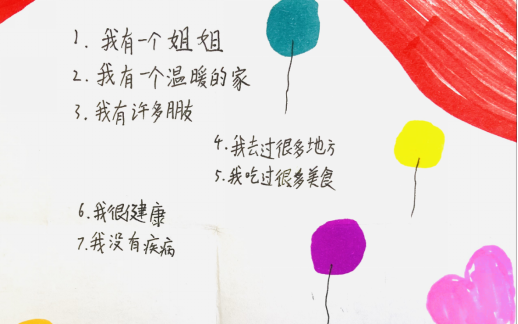 1. 我有一个姐姐
2. 我有一个温暖的家
3. 我有许多朋友
4. 我去过很多地方
5. 我吃过很多美食
6. 我很健康
7. 我没有疾病